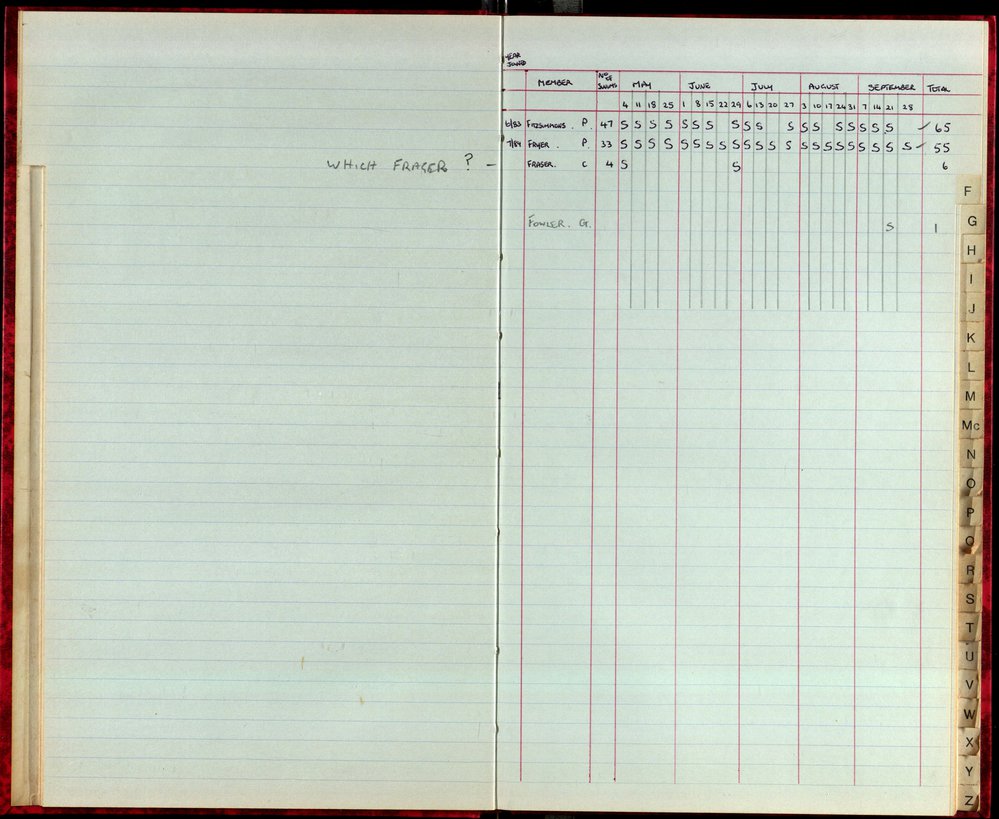 YEAR JOINED
MEMBER NO OF SWIMS MAY JUNE JULY AUGUST SEPTEMBER TOTAL
4 11 18 25 1 8 15 22 29 6 13 20 27 3 10 17 24 31 7 14 21 28
6/83 FITZSIMMONS. P. 47 S S S S S S S S S S S S S S S S S S ✓ 65
7/84 FRYER. P. 33 S S S S S S S S S S S S S S S S S S S S S S ✓ 55
WHICH FRASER ? – FRASER. C 4 S S 6
FOWLER. G. S 1
F
G
H
I
J
K
L
M
Mc
N
O
P
Q
R
S
T
U
V
W
X
Y
Z